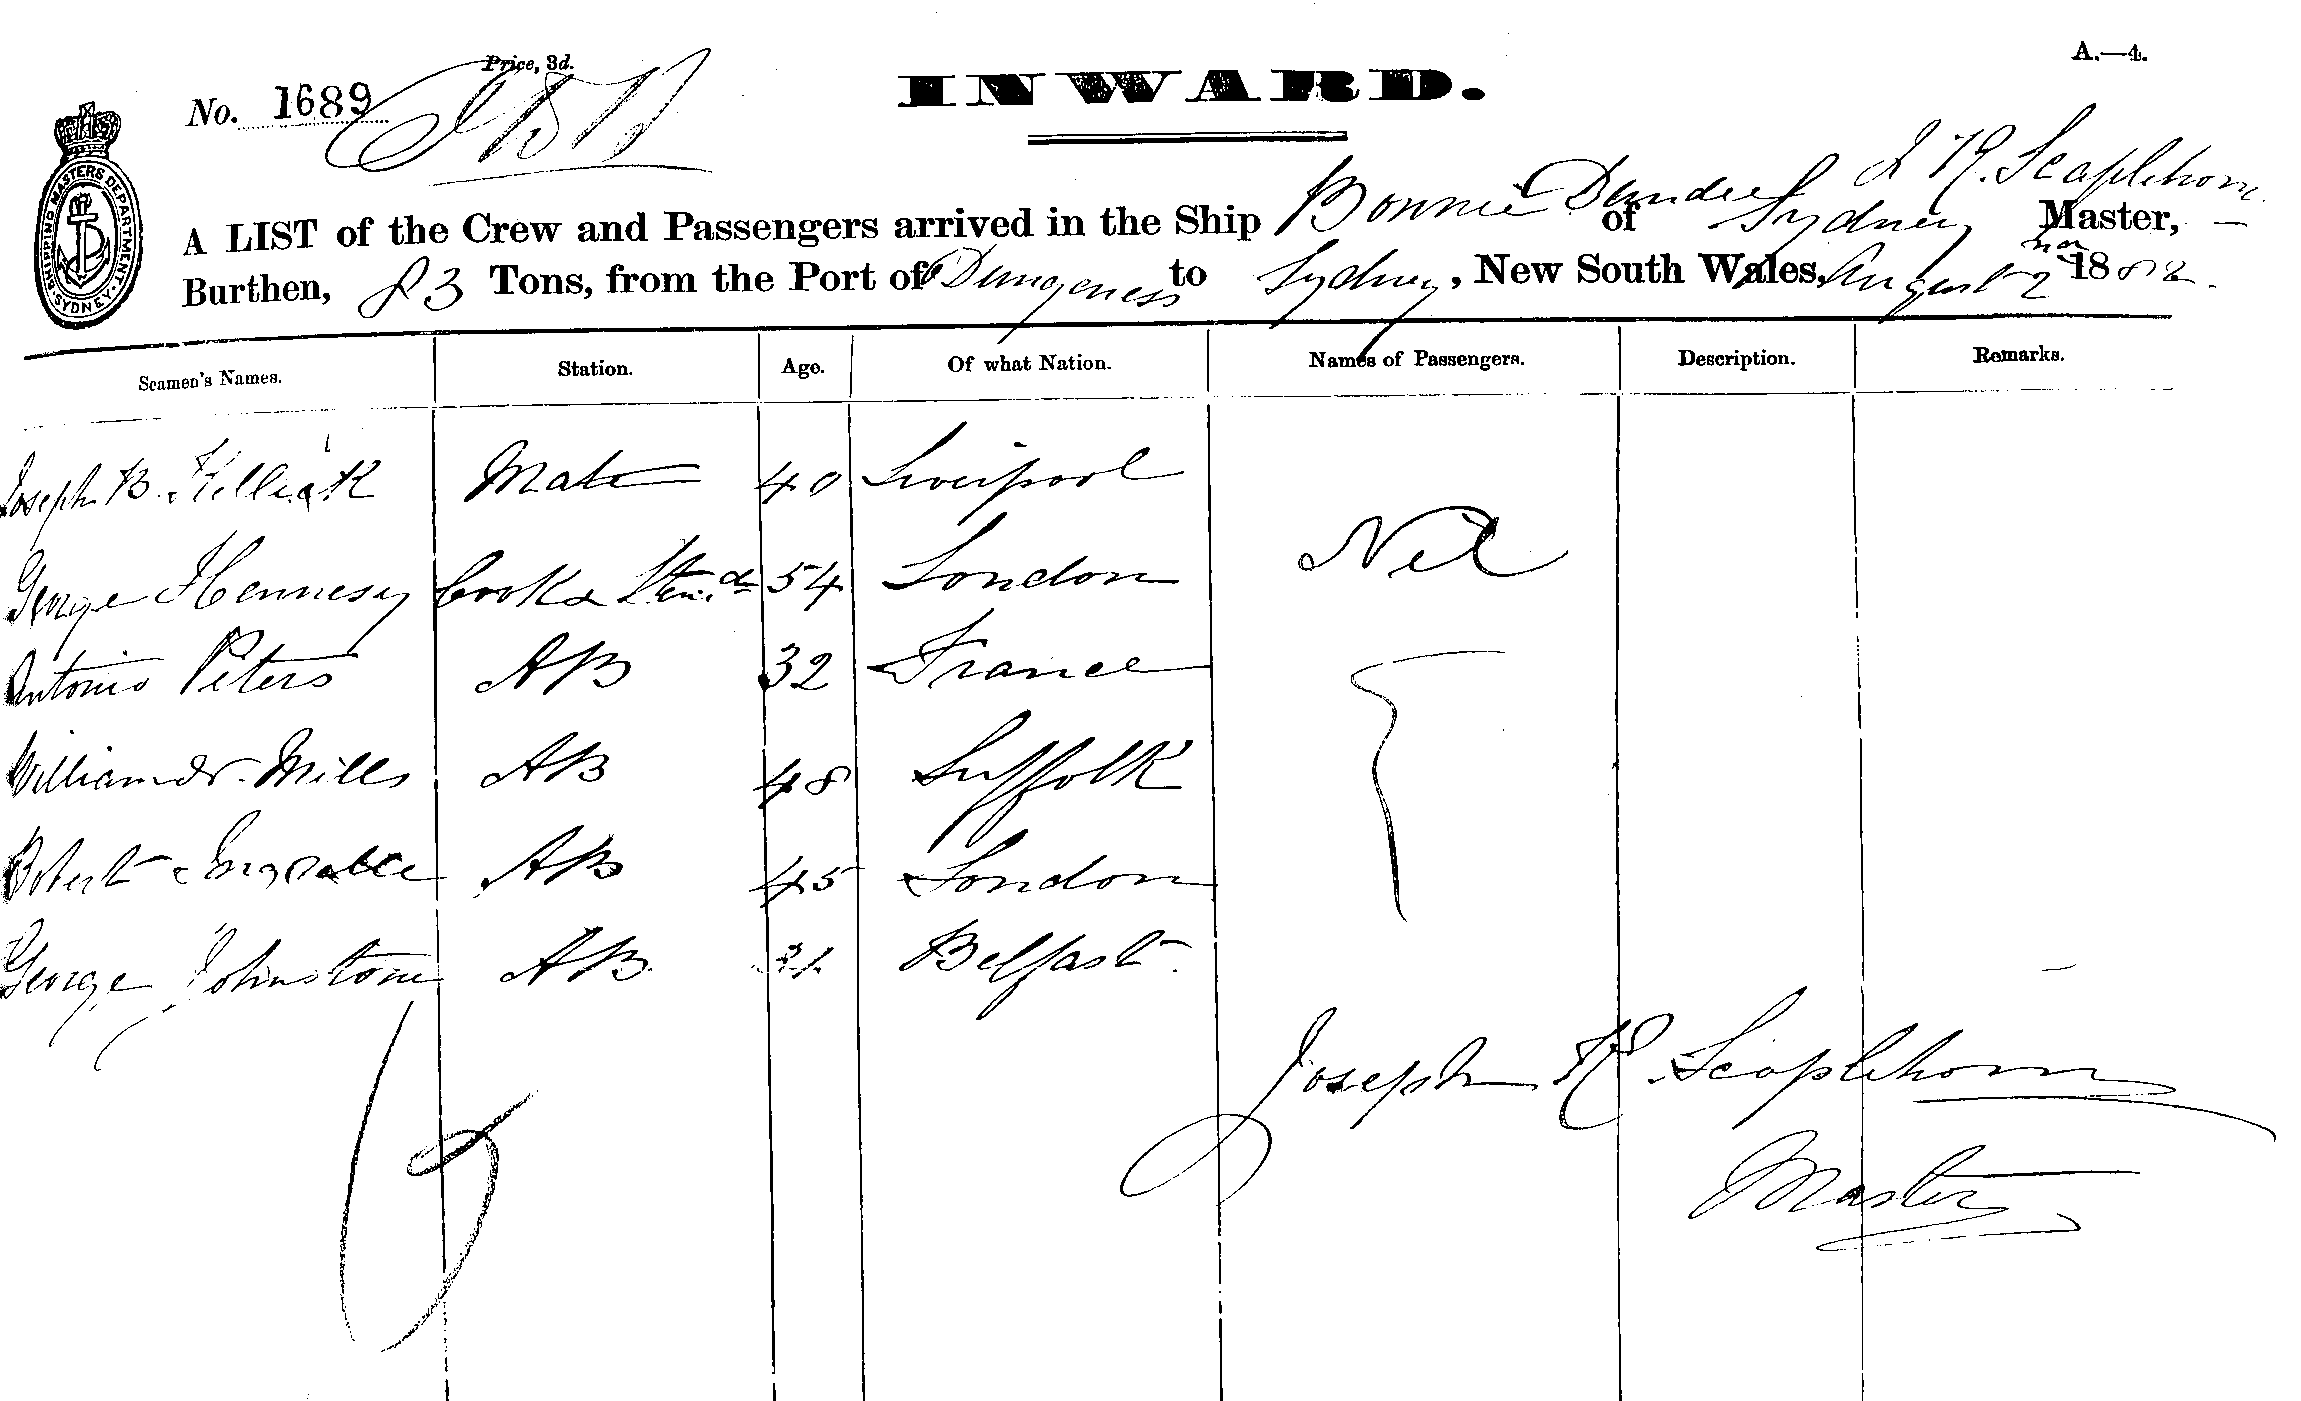 A.—4.
Price, 3d.
No. 1689
INWARD.
SHIPPING MASTERS DEPARTMENT SYDNEY
J Scaplehorn
A LIST of the Crew and Passengers arrived in the Ship Bonnie Dundee of Sydney Master,
Burthen, 83 Tons, from the Port of Dungeness to Sydney, New South Wales, August 2nd 1882.
Seamen's Names. Station. Age. Of what Nation. Names of Passengers. Description. Remarks.
Joseph B. Mate 40 Liverpool
George Hennesy Cook & Stew.d 54 London Nil
Antonio Peters AB 32 France
William Mills AB 48 Suffolk
Robert AB 45 London
George Johnstone AB Belfast.
Joseph Scaplehorn
Master
6